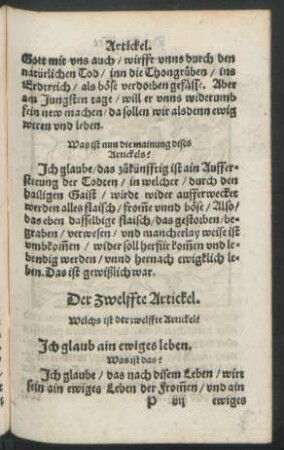 Artickel.
Gott mit vns auch / wirfft vnns durch den
natürlichen Tod / inn die Thongrüben / ins
Erdtreich / als böse verdorben gefäss. Aber
am Jungsten tage / will er vnns widerumb
fein new machen / da sollen wir alsdenn ewig
weren vnd leben.
Was ist nun die mainung dises
Artickels?
Ich glaube / das zükünfftig ist ain Auffer-
steeung der Todten / in welcher / durch den
hailigen Gaist / wirdt wider aufferwecket
werden alles flaisch / from̄e vnnd böse / Also /
das eben dasselbige flaisch / das gestorben / be-
graben / verwesen / vnd mancherlay weise ist
vmbkom̄en / wider soll herfür kom̄en vnd le-
bendig werden / vnnd hernach ewigklich le-
ben. Das ist gewißlich war.
Der Zwelffte Artickel.
Welchs ist der zwelffte Artickel?
Ich glaub ain ewiges leben.
Was ist das?
Ich glaube / das nach disem Leben / wirt
sein ain ewiges Leben der From̄en / vnd ain
P iij ewiges